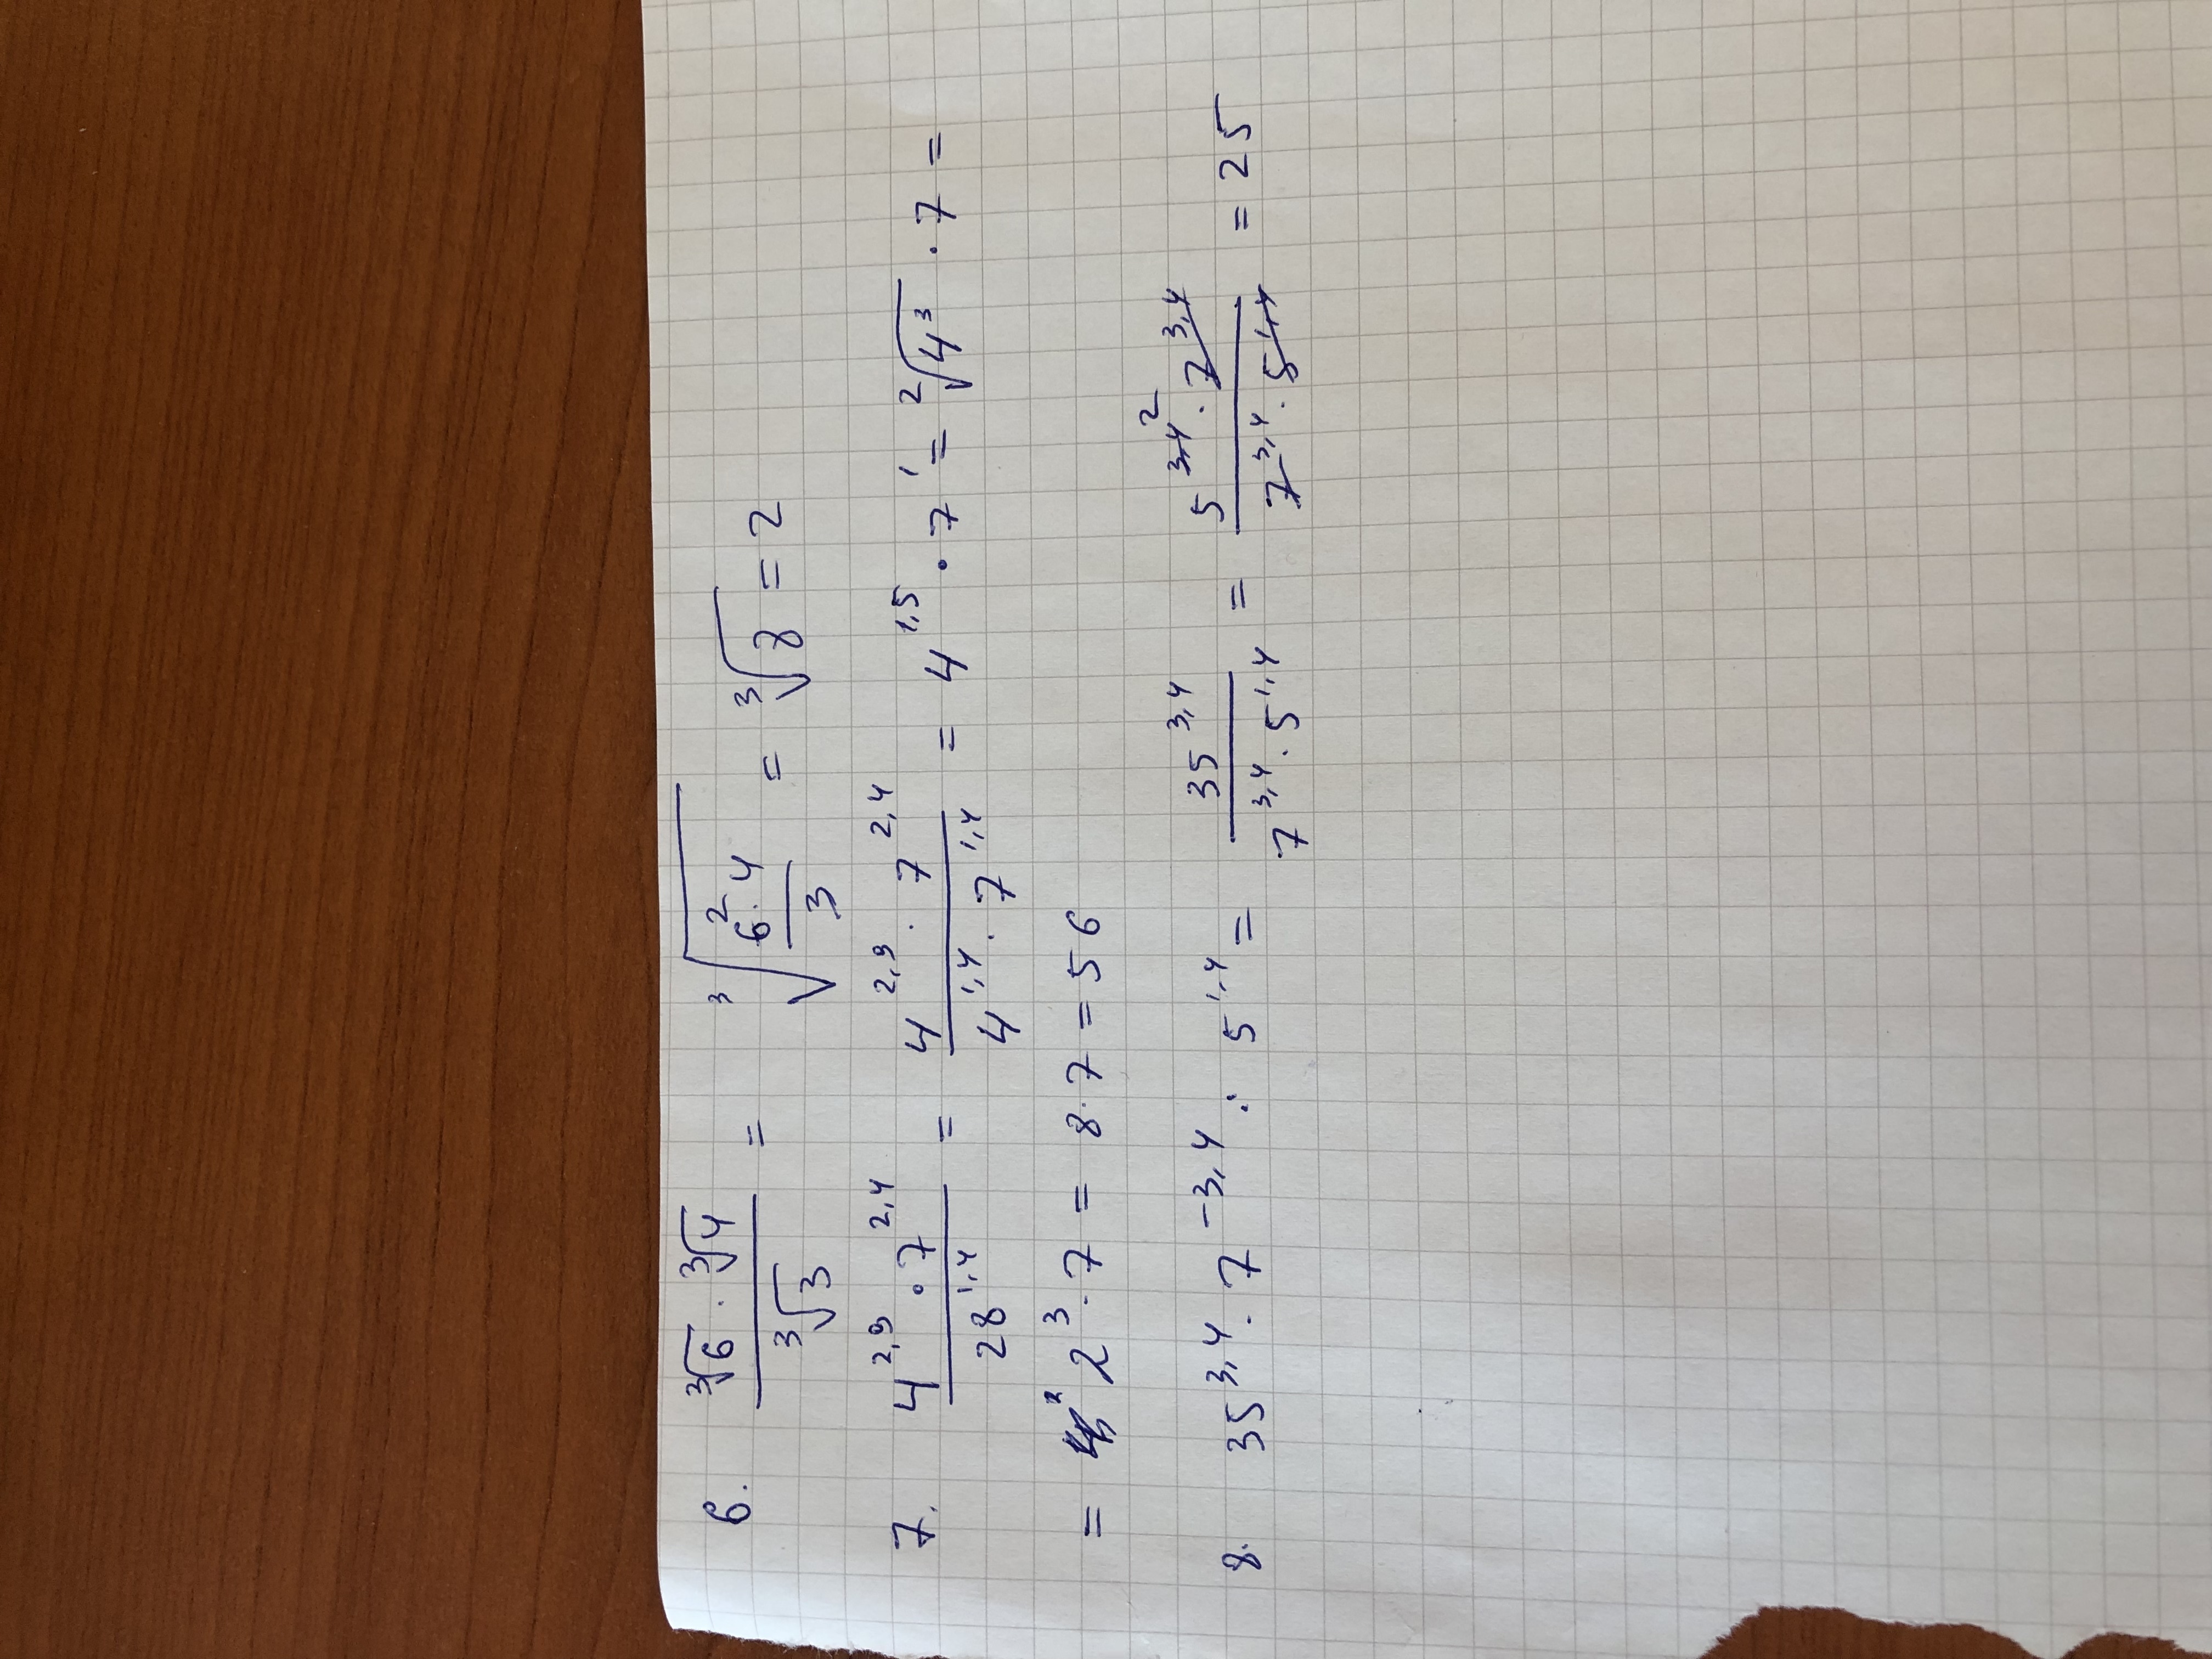 6. ∛6 · ∛4 / ∛3 = ∛(6² · 4 / 3) = ∛8 = 2
7. 4^2,9 · 7^2,4 / 28^1,4 = 4^2,9 · 7^2,4 / 4^1,4 · 7^1,4 = 4^1,5 · 7^1 = ²√4³ · 7 =
= 2³ · 7 = 8 · 7 = 56
8. 35^3,4 · 7^-3,4 : 5^1,4 = 35^3,4 / 7^3,4 · 5^1,4 = 5^3,4 ² · 7^3,4 / 7^3,4 · 5^1,4 = 25